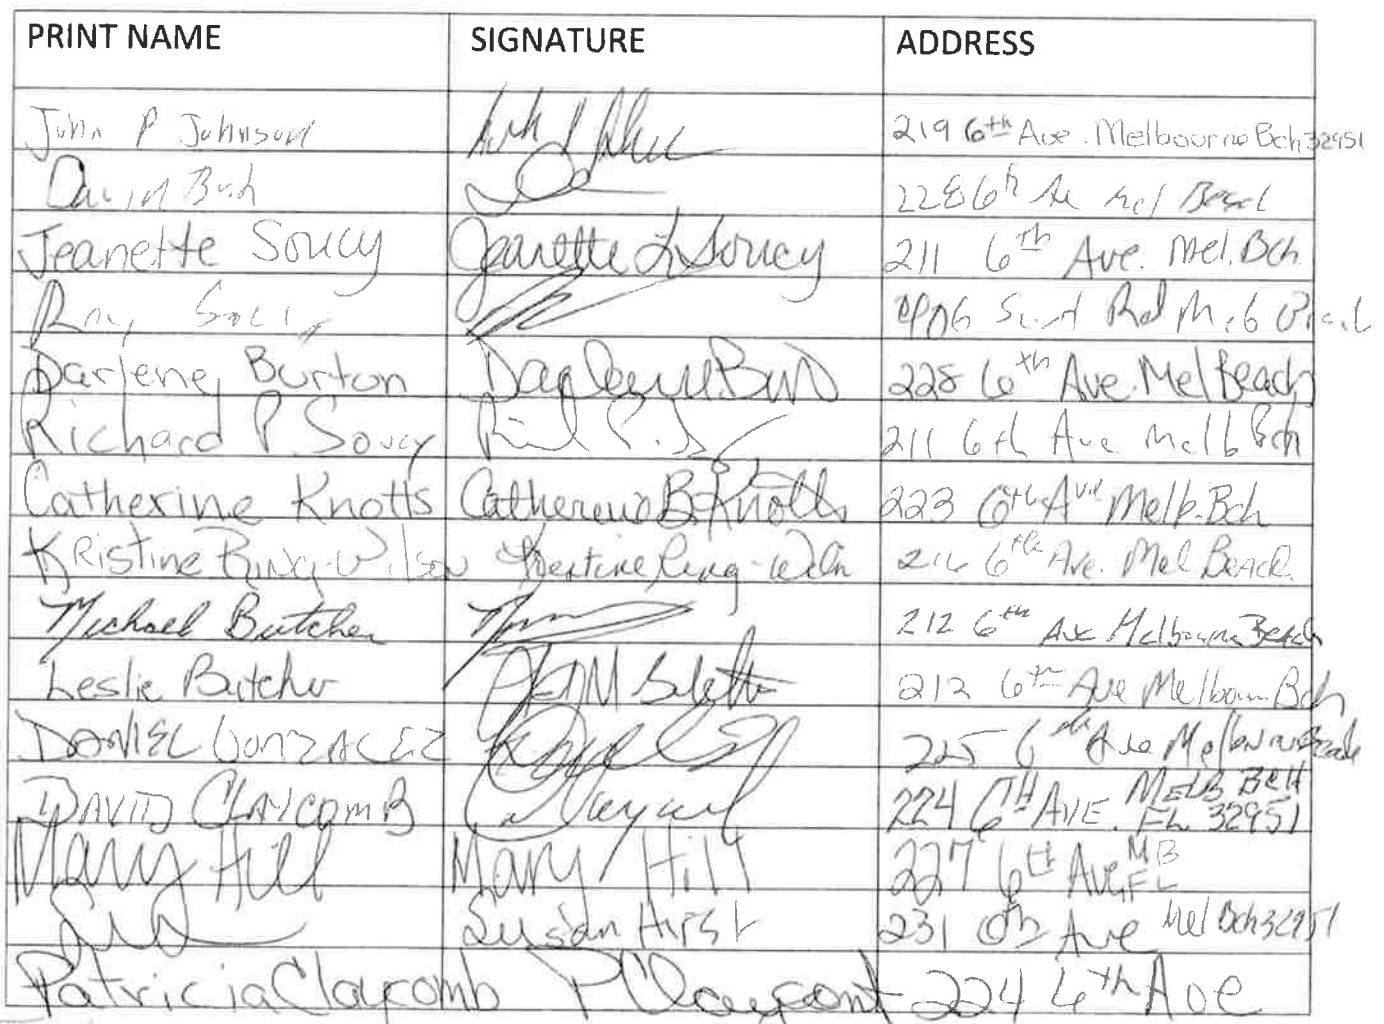 PRINT NAME SIGNATURE ADDRESS
John P Johnson 219 6th Ave. Melbourne Bch 32951
228 6th Ave Mel Beach
Jeanette Soucy Jeanette L Soucy 211 6th Ave. Mel. Bch.
Ray
Darlene Burton 228 6th Ave. Mel Beach
Richard P Soucy 211 6th Ave Melb Bch
Catherine Knotts Catherine B. Knotts 223 6th Ave Melb. Bch
Kristine Ring-Wilson Kristine Ring-Wilson 216 6th Ave. Mel Beach.
Michael Butcher 212 6th Ave Melbourne Beach
Leslie Butcher 212 6th Ave Melbourn Bch
DANIEL GONZALEZ 225 6th Ave Melbourne Beach
DAVID CLAYCOMB 224 6TH AVE. MELB BCH FL 32951
Mary Hill Mary Hill 227 6th Ave MB FL
Susan Hirst 231 6th Ave Mel Bch 32951
Patricia Claycomb P Claycomb 224 6th Ave